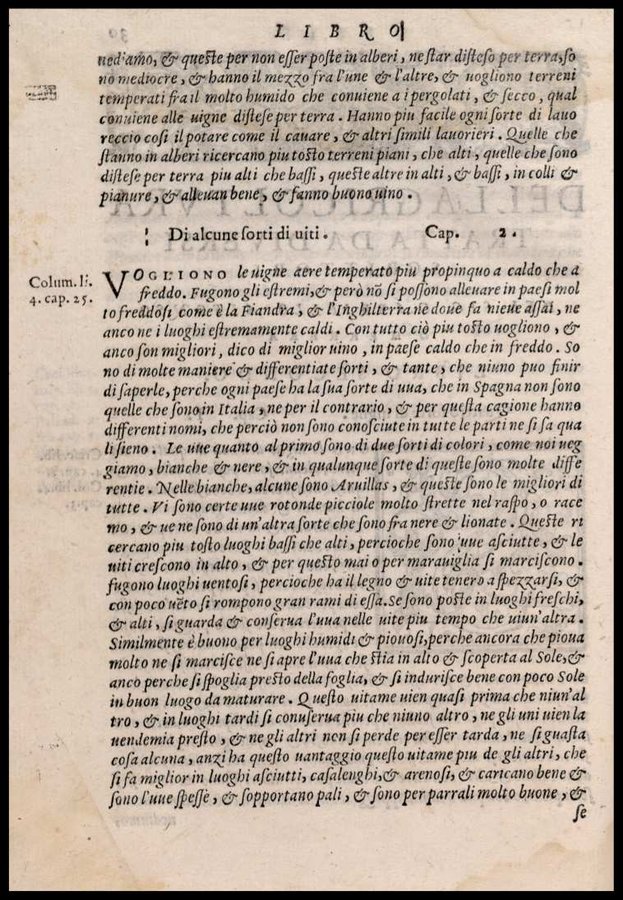 LIBRO
nediamo, & queste per non esser poste in alberi, ne star disteso per terra, so
no mediocre, & hanno il mezzo fra l'une & l'altre, & uogliono terreni
temperati fra il molto humido che conuiene a i pergolati, & secco, qual
conuiene alle uigne distese per terra. Hanno piu facile ogni sorte di lauo
reccio cosi il potare come il cauare, & altri simili lauorieri. Quelle che
stanno in alberi ricercano piu tosto terreni piani, che alti, quelle che sono
distese per terra piu alti che bassi, queste altre in alti, & bassi, in colli &
pianure, & alleuan bene, & fanno buono uino.
Di alcune sorti di uiti. Cap. 2.
Colum. li.
4. cap. 25.
VOGLIONO le uigne aere temperato piu propinquo a caldo che a
freddo. Fugono gli estremi, & però nō si possono alleuare in paesi mol
to freddosi come è la Fiandra, & l'Inghilterra ne doue fa nieue assai, ne
anco ne i luoghi estremamente caldi. Con tutto ciò piu tosto uogliono, &
anco son migliori, dico di miglior uino, in paese caldo che in freddo. So
no di molte maniere & differentiate sorti, & tante, che niuno puo finir
di saperle, perche ogni paese ha la sua sorte di uua, che in Spagna non sono
quelle che sono in Italia, ne per il contrario, & per questa cagione hanno
differenti nomi, che perciò non sono conosciute in tutte le parti ne si sa qua
li sieno. Le uue quanto al primo sono di due sorti di colori, come noi ueg
giamo, bianche & nere, & in qualunque sorte di queste sono molte diffe
rentie. Nelle bianche, alcune sono Aruillas, & queste sono le migliori di
tutte. Vi sono certe uue rotonde picciole molto strette nel raspo, o race
mo, & ue ne sono di un'altra sorte che sono fra nere & lionate. Queste ri
cercano piu tosto luoghi bassi che alti, percioche sono uue asciutte, & le
uiti crescono in alto, & per questo mai o per marauiglia si marciscono.
fugono luoghi uentosi, percioche ha il legno & uite tenero a spezzarsi, &
con poco uēto si rompono gran rami di essa. Se sono poste in luoghi freschi,
& alti, si guarda & conserua l'uua nelle uite piu tempo che niun'altra.
Similmente è buono per luoghi humidi & piouosi, perche ancora che pioua
molto ne si marcisce ne si apre l'uua che stia in alto & scoperta al Sole, &
anco perche si spoglia presto della foglia, & si indurisce bene con poco Sole
in buon luogo da maturare. Questo uitame uien quasi prima che niun'al
tro, & in luoghi tardi si conuserua piu che niuno altro, ne gli uni uien la
uendemia presto, & ne gli altri non si perde per esser tarda, ne si guasta
cosa alcuna, anzi ha questo uantaggio questo uitame piu de gli altri, che
si fa miglior in luoghi asciutti, casalenghi, & arenosi, & caricano bene &
sono l'uue spesse, & sopportano pali, & sono per parrali molto buone, &
se